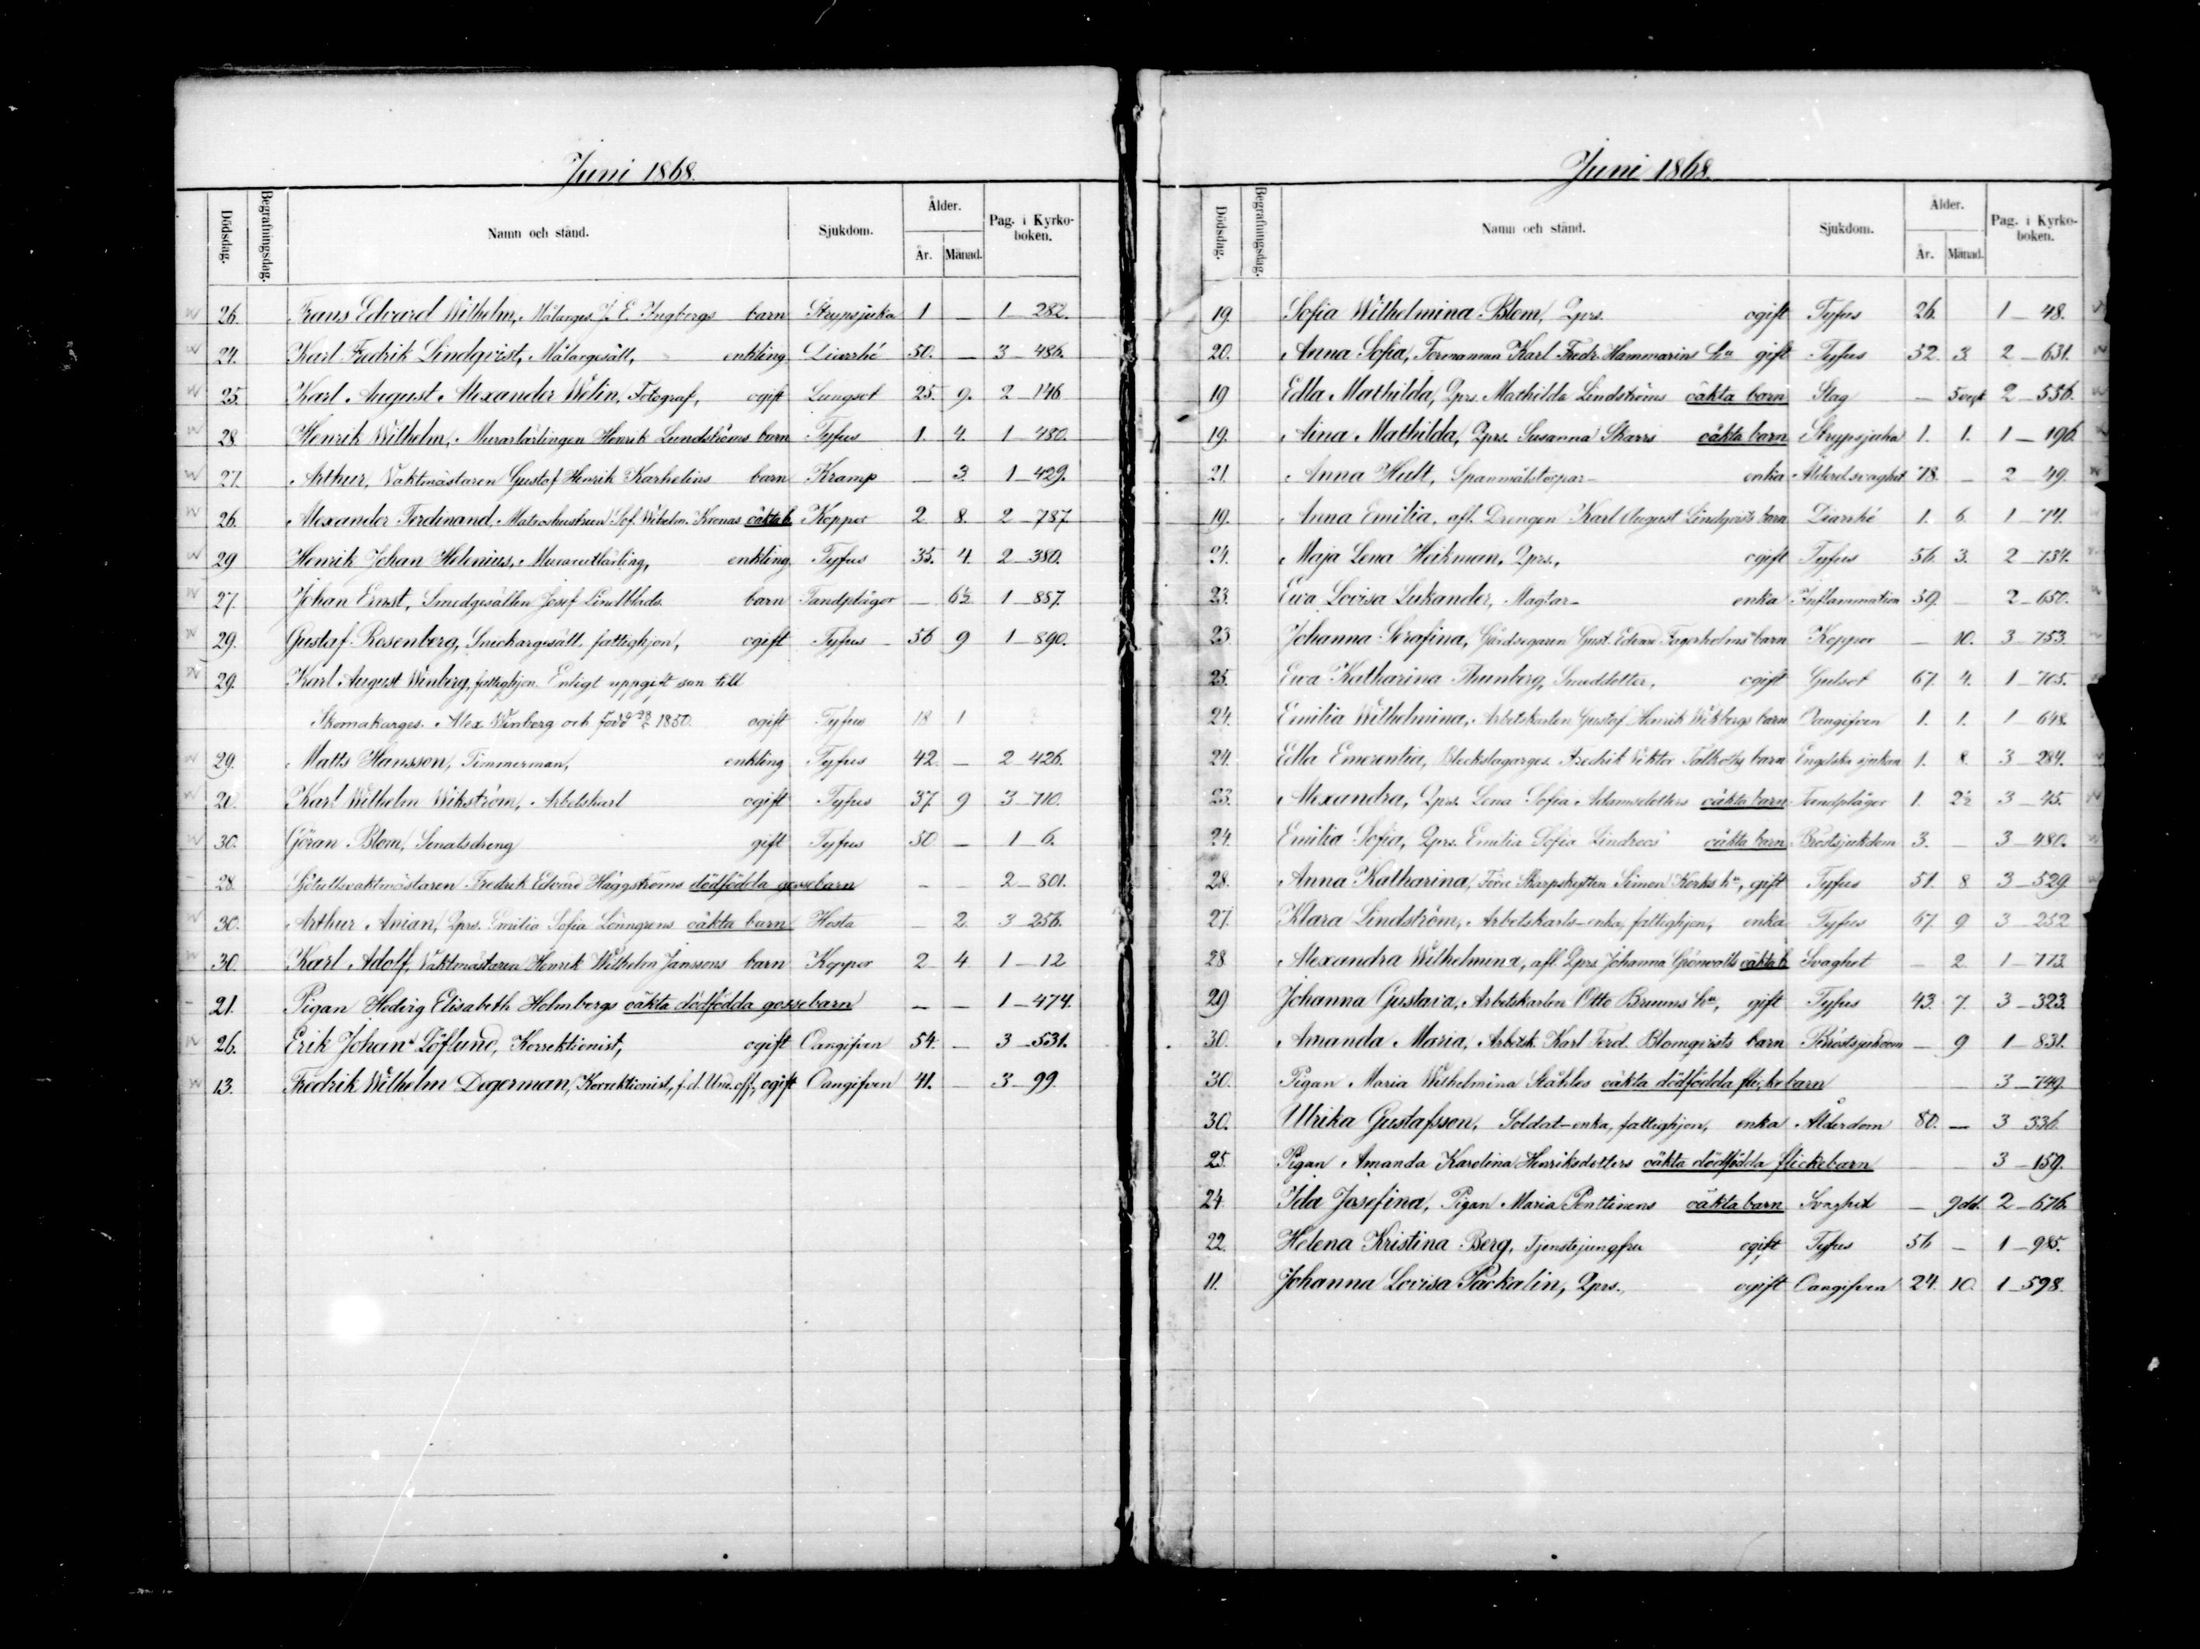 Juni 1868.
Dödsdag. Begrafningsdag. Namn och stånd. Sjukdom. Ålder. År. Månad. Pag. i Kyrko-boken.
26. Frans Edvard Wilhelm, Målarges. J. E. Ingbergs barn Strypsjuka 1 — 1 — 282.
24. Karl Fredrik Lindqvist, Målargesäll, enkling Diarrhé 50. — 3 — 486.
25. Karl August Alexander Welin, Fotograf, ogift Lungsot 25. 9. 2 146
28 Henrik Wilhelm, Murarlärlingen Henrik Lundströms barn Tyfus 1. 4. 1 — 480.
27. Arthur, Vaktmästaren Gustaf Henrik Karhelins barn Kramp — 3. 1 — 429.
26. Alexander Ferdinand, Matroshustrun Sof. Wilhelm. Kronas oäkta b. Koppor 2. 8. 2 — 787.
29 Henrik Johan Helenius, Murarutlärling, enkling Tyfus 35. 4. 2 — 380.
27. Johan Ernst, Smedgesällen Josef Lindblads barn Tandplågor — 6½ 1 — 857.
29. Gustaf Rosenberg, Snickargesäll, fattighjon, ogift Tyfus — 56 9 1 — 890.
29. Karl August Winberg, fattighjon. Enligt uppgift son till
Skomakarges. Alex Winberg och född 1850. ogift Tyfus 18 1
29. Matts Hansson, Timmerman, enkling Tyfus 42. — 2 — 426.
20. Karl Wilhelm Wikström, Arbetskarl ogift Tyfus 37. 9 3 — 710.
30. Göran Blom, Senatsdreng gift Tyfus 50 — 1 — 6.
28. Sjötullsvaktmästaren Fredrik Edvard Häggströms dödfödda gossebarn — — 2 — 801.
30. Arthur Anian, Qprs. Emilia Sofia Lönngrens oäkta barn Hosta — 2. 3 — 256.
30. Karl Adolf, Vaktmästaren Henrik Wilhelm Janssons barn Koppor 2 4 1 — 12
21. Pigan Hedvig Elisabeth Holmbergs oäkta dödfödda gossebarn — — 1 — 474.
26. Erik Johan Löflund, Korrektionist, ogift Oangifven 54. — 3 — 531.
13. Fredrik Wilhelm Degerman, Korrektionist, f.d. Und. off., ogift Oangifven 41. — 3 — 99.
Juni 1868.
Dödsdag. Begrafningsdag. Namn och stånd. Sjukdom. Ålder. År. Månad. Pag. i Kyrko-boken.
19. Sofia Wilhelmina Blom, Qprs. ogift Tyfus 26. 1 — 48.
20. Anna Sofia, Formannen Karl Fredr. Hammarins hu gift Tyfus 52. 3. 2 — 631.
19 Edla Mathilda, Qprs. Mathilda Lindströms oäkta barn Slag — 5 vek 2 — 536.
19. Aina Mathilda, Qprs. Susanna Skarrs oäkta barn Strypsjuka 1. 1. 1 — 196.
21. Anna Hult, Spanmålstorpar- enka Ålderd.svaghet 78. — 2 — 49.
19. Anna Emilia, afl. Drengen Karl August Lindqvists barn Diarrhé 1. 6. 1 — 74.
24. Maja Lena Heikman, Qprs., ogift Tyfus 56. 3. 2 — 734.
23. Eva Lovisa Lukander, Magtar- enka Inflammation 59. — 2 — 650.
23 Johanna Serafina, Gårdsegaren Gust. Edvard Fagerholms barn Koppor — 10. 3 — 753.
25. Eva Katharina Thunberg, Smeddotter, ogift Gulsot 67. 4. 1 — 705.
24. Emilia Wilhelmina, Arbetskarlen Gustaf Henrik Wikbergs barn Oangifven 1. 1. 1 — 648.
24. Edla Emerentia, Bleckslagarges. Fredrik Viktor Tallroths barn Engelska sjukan 1. 8. 3 — 284.
23. Alexandra, Qprs. Lena Sofia Adamsdotters oäkta barn Tandplågor 1. 2½ 3 — 45.
24. Emilia Sofia, Qprs. Emilia Sofia Lindroos' oäkta barn Bröstsjukdom 3. — 3 — 480.
28. Anna Katharina, Förre Skarpskytten Simon Korks hu, gift Tyfus 51. 8 3 — 529.
27. Klara Lindström, Arbetskarls-enka, fattighjon, enka Tyfus 67. 9 3 — 252
28. Alexandra Wilhelmina, afl. Qprs. Johanna Grönvalls oäkta b. Svaghet — 2. 1 — 773.
29 Johanna Gustava, Arbetskarlen Otto Bruuns hu, gift Tyfus 43. 7. 3 — 323.
30. Amanda Maria, Arbetsk. Karl Ferd. Blomqvists barn Bröstsjukdom — 9 1 — 831.
30. Pigan Maria Wilhelmina Ståhles oäkta dödfödda flickebarn — 3 — 749.
30. Ulrika Gustafsson, Soldat-enka, fattighjon, enka Ålderdom 80. — 3 336.
25. Pigan Amanda Karolina Henriksdotters oäkta dödfödda flickebarn — — 3 — 159.
24. Ida Josefina, Pigan Maria Penttinens oäkta barn Svaghet — 9 dd. 2 — 676.
22. Helena Kristina Berg, Tjenstejungfru ogift Tyfus 56 — 1 — 985.
11. Johanna Lovisa Packalin, Qprs., ogift Oangifven 24. 10. 1 — 598.